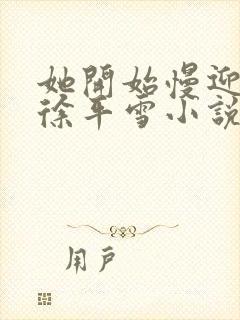 她開始慢迎
徐平雪小說
用戶